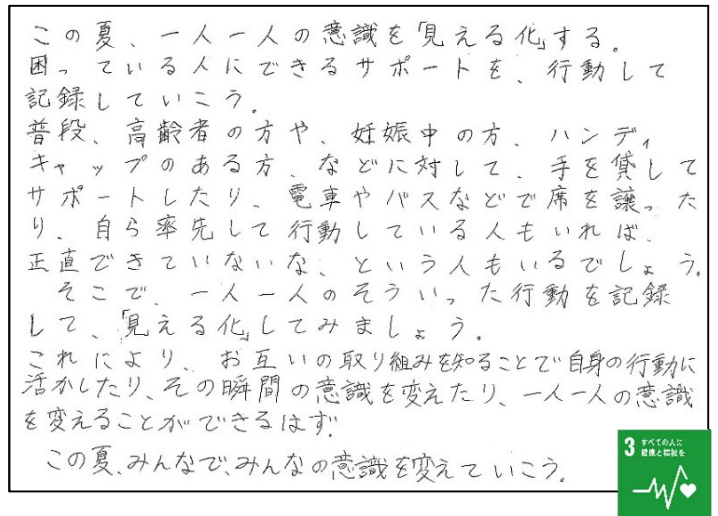 この夏、一人一人の意識を「見える化」する。
困っている人にできるサポートを、行動して
記録していこう。
普段、高齢者の方や、妊娠中の方、ハンディ
キャップのある方、などに対して、手を貸して
サポートしたり、電車やバスなどで席を譲った
り、自ら率先して行動している人もいれば、
正直できていないな、という人もいるでしょう。
そこで、一人一人のそういった行動を記録
して、「見える化」してみましょう。
これにより、お互いの取り組みを知ることで自身の行動に
活かしたり、その瞬間の意識を変えたり、一人一人の意識
を変えることができるはず。
この夏、みんなで、みんなの意識を変えていこう。
3 すべての人に
健康と福祉を